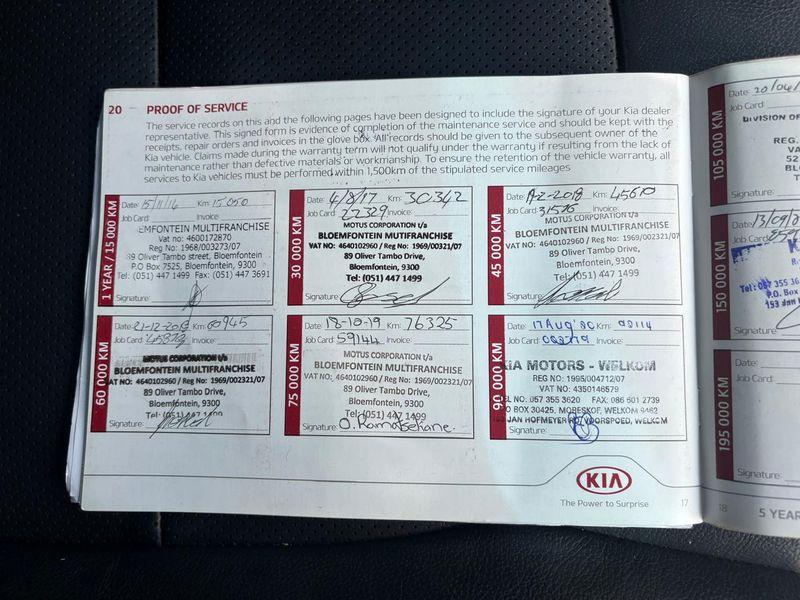 20 PROOF OF SERVICE
The service records on this and the following pages have been designed to include the signature of your Kia dealer
representative. This signed form is evidence of completion of the maintenance service and should be kept with the
receipts, repair orders and invoices in the glove box. All records should be given to the subsequent owner of the
Kia vehicle. Claims made during the warranty term will not qualify under the warranty if resulting from the lack of
maintenance rather than defective materials or workmanship. To ensure the retention of the vehicle warranty, all
services to Kia vehicles must be performed within 1,500km of the stipulated service mileages
1 YEAR / 15 000 KM
Date: 15/11/16 Km: 15050
Job Card: Invoice:
EMFONTEIN MULTIFRANCHISE
Vat no: 4600172870
Reg No: 1968/003273/07
89 Oliver Tambo street, Bloemfontein
P.O Box 7525, Bloemfontein, 9300
Tel: (051) 447 1499 Fax: (051) 447 3691
Signature:
30 000 KM
Date: 4/8/17 Km: 30342
Job Card: 22329 Invoice:
MOTUS CORPORATION t/a
BLOEMFONTEIN MULTIFRANCHISE
VAT NO: 4640102960 / Reg No: 1969/002321/07
89 Oliver Tambo Drive,
Bloemfontein, 9300
Tel: (051) 447 1499
Signature:
45 000 KM
Date: 2-2018 Km: 45610
Job Card: 31516 Invoice:
MOTUS CORPORATION t/a
BLOEMFONTEIN MULTIFRANCHISE
VAT NO: 4640102960 / Reg No: 1969/002321/07
89 Oliver Tambo Drive,
Bloemfontein, 9300
Tel: (051) 447 1499
Signature:
60 000 KM
Date: 21-12-2018 Km: 60945
Job Card: Invoice:
MOTUS CORPORATION t/a
BLOEMFONTEIN MULTIFRANCHISE
VAT NO: 4640102960 / Reg No: 1969/002321/07
89 Oliver Tambo Drive,
Bloemfontein, 9300
Tel: (051) 447 1499
Signature:
75 000 KM
Date: 18-10-19 Km: 76325
Job Card: 59144 Invoice:
MOTUS CORPORATION t/a
BLOEMFONTEIN MULTIFRANCHISE
VAT NO: 4640102960 / Reg No: 1969/002321/07
89 Oliver Tambo Drive,
Bloemfontein, 9300
Tel: (051) 447 1499
Signature: O. Ramabekane.
90 000 KM
Date: 17 Aug 20 Km: 90114
Job Card: Invoice:
KIA MOTORS - WELKOM
REG NO: 1995/004712/07
VAT NO: 4350146579
EL NO: 057 355 3620 FAX: 086 601 2739
O BOX 30425, MORESKOF, WELKOM 9462
JAN HOFMEYER RD, VOORSPOED, WELKOM
Signature:
KIA
The Power to Surprise
17
105 000 KM
Date: 20/04/
Job Card:
DIVISION OF
REG.
VA
52
BLO
T
Signature:
150 000 KM
Date: 13/09/2
Job Card:
K
R
Tel: 057 355 36
P.O. Box
153 Jan
Signature:
195 000 KM
Date:
Job Card:
Signature:
18 5 YEAR